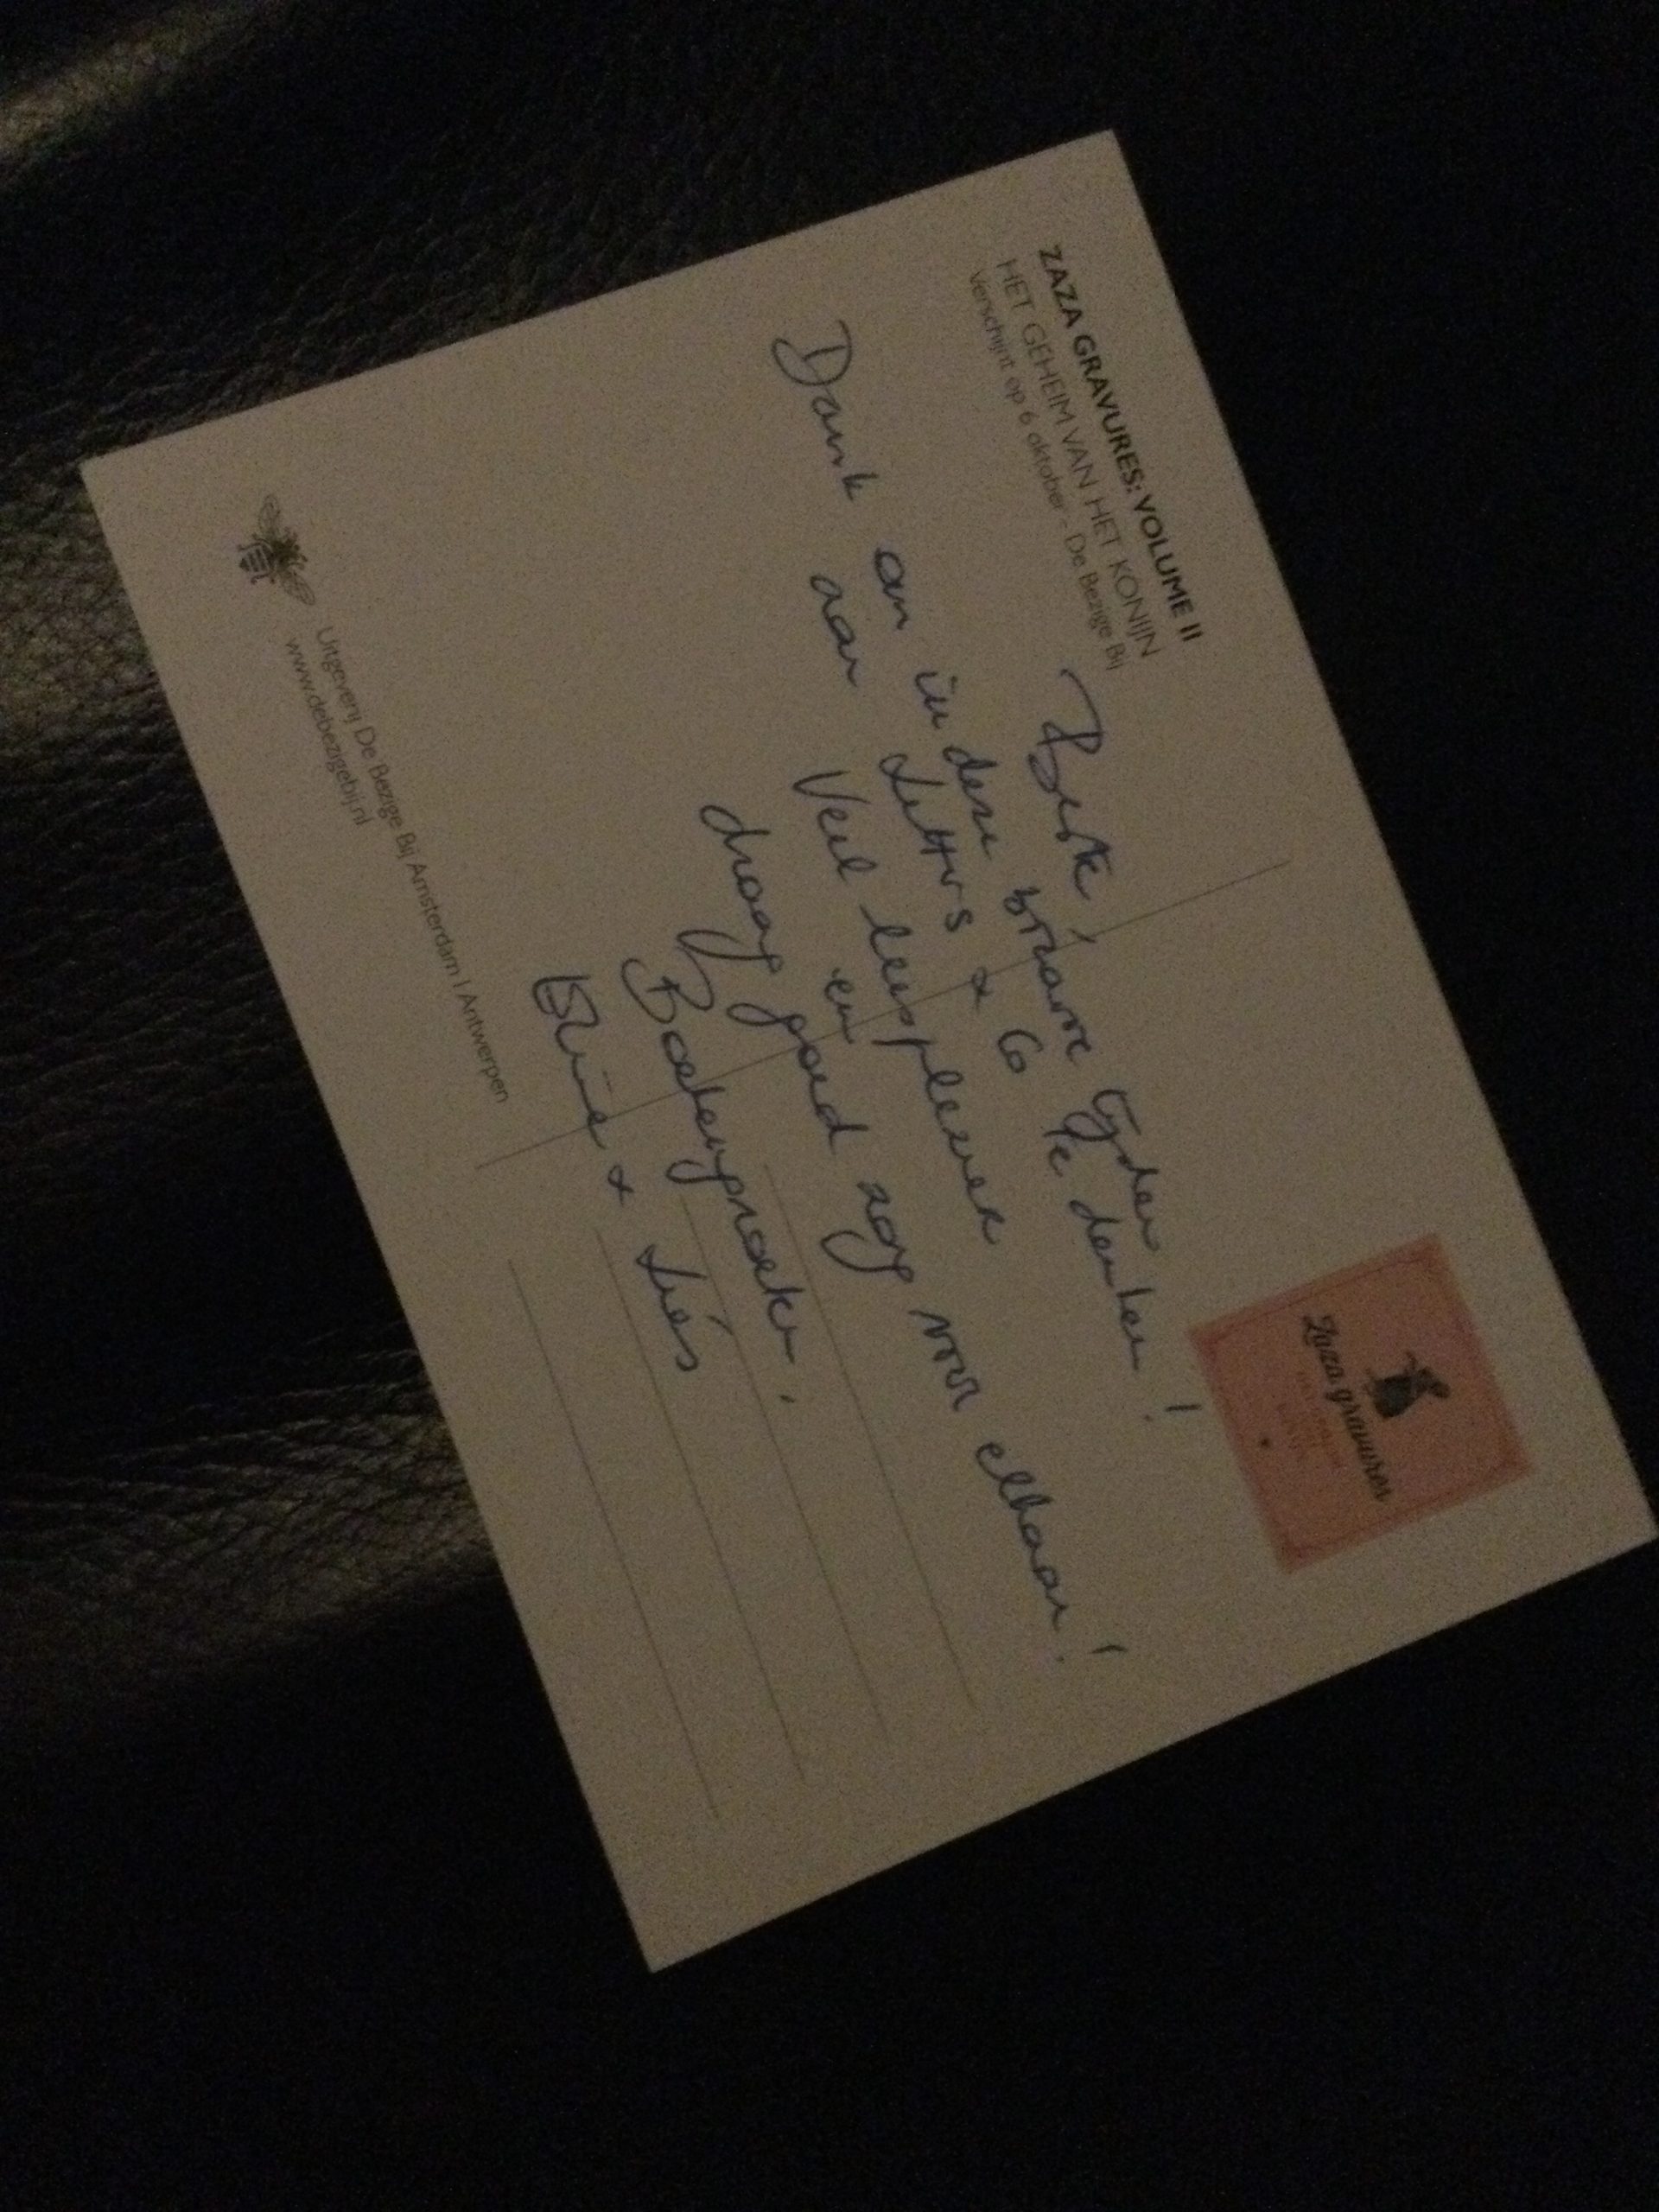 ZAZA GRAVURES: VOLUME II
HET GEHEIM VAN HET KONIJN
Verschijnt op 6 oktober - De Bezige Bij
Zaza gravures
Beste,
Dank om in deze bizarre tijden
aan Letters & Co te denken!
Veel leesplezier
en
draag goed zorg voor elkaar!
Boekengroeten,
& Liés
Uitgeverij De Bezige Bij Amsterdam | Antwerpen
www.debezigebij.nl